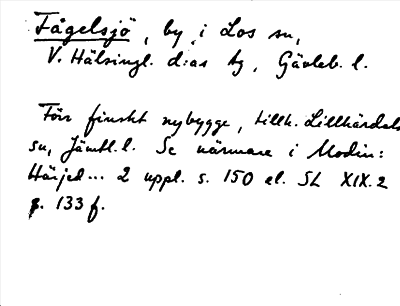 Fågelsjö, by i Los sn,
V. Hälsingl. d:as tg, Gävleb. l.
Förr finskt nybygge, tillh. Lillhärdals
sn, Jämtl. l. Se närmare i Modin:
Härjed... 2 uppl. s. 150 el. SL XIX.2
s. 133 f.